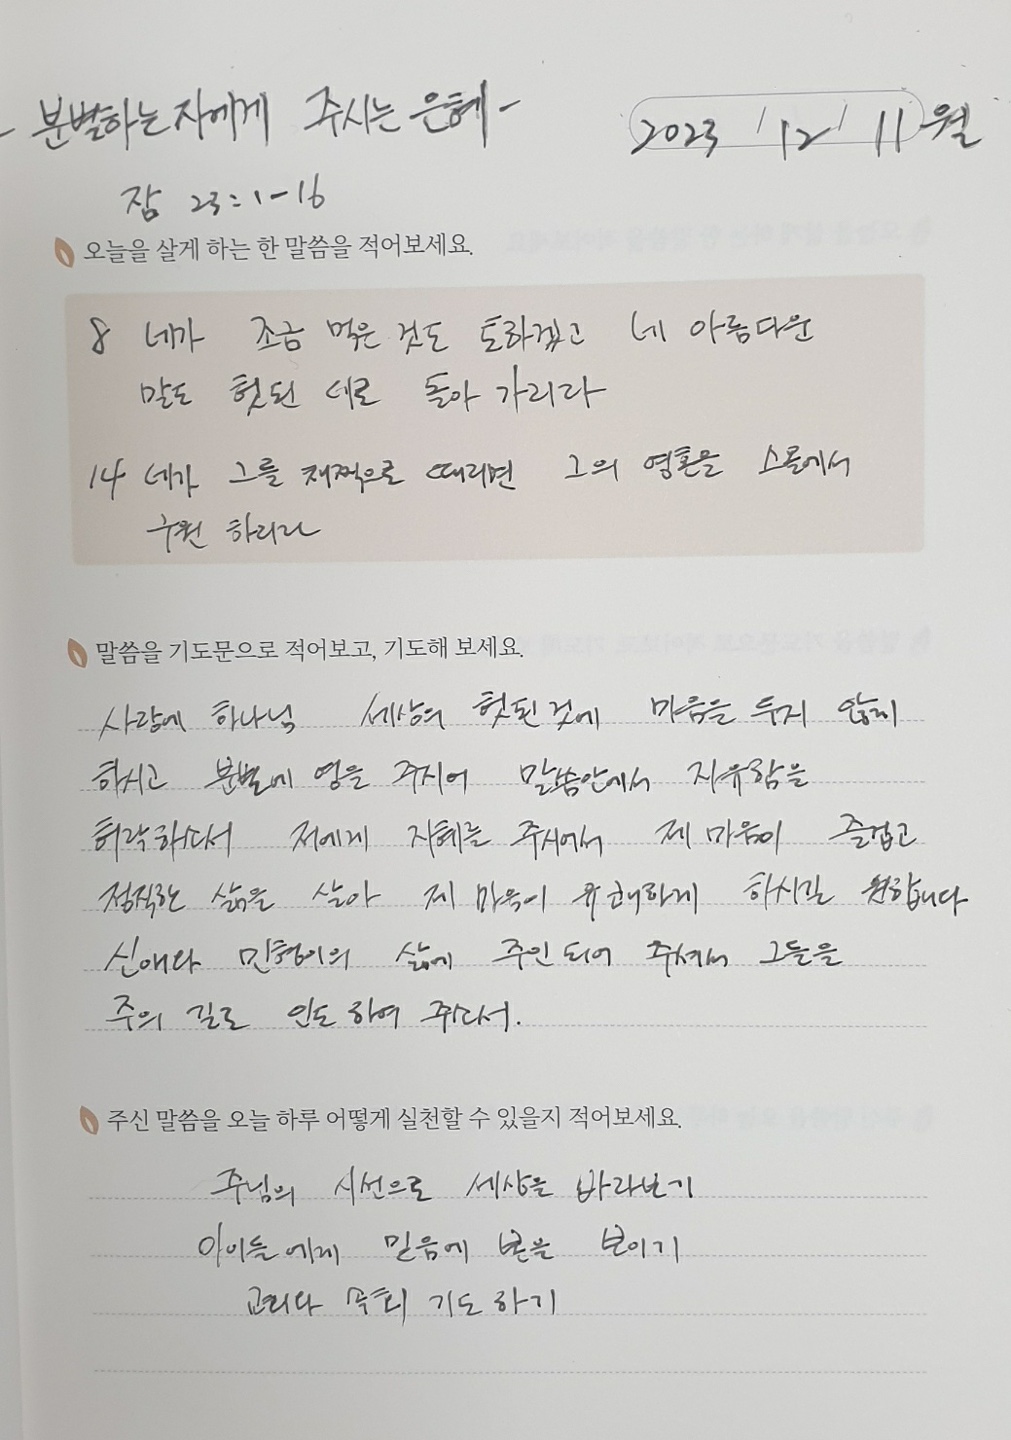 - 분별하는 자에게 주시는 은혜 -
2023 / 12 / 11 월
잠 23:1-16
오늘을 살게 하는 한 말씀을 적어보세요.
8 네가 조금 먹은 것도 토하겠고 네 아름다운
말도 헛된 데로 돌아 가리라
14 네가 그를 채찍으로 때리면 그의 영혼을 스올에서
구원 하리라
말씀을 기도문으로 적어보고, 기도해 보세요.
사랑에 하나님 세상의 헛된 것에 마음을 두지 않게
하시고 분별에 영을 주시어 말씀안에서 자유함을
허락하소서 저에게 지혜를 주시어서 제 마음이 즐겁고
정직한 삶을 살아 제 마음이 유쾌하게 하시길 원합니다
신애와 민형이의 삶에 주인 되어 주셔서 그들을
주의 길로 인도 하여 주소서.
주신 말씀을 오늘 하루 어떻게 실천할 수 있을지 적어보세요.
주님의 시선으로 세상을 바라보기
아이들에게 믿음에 본을 보이기
기도 하기